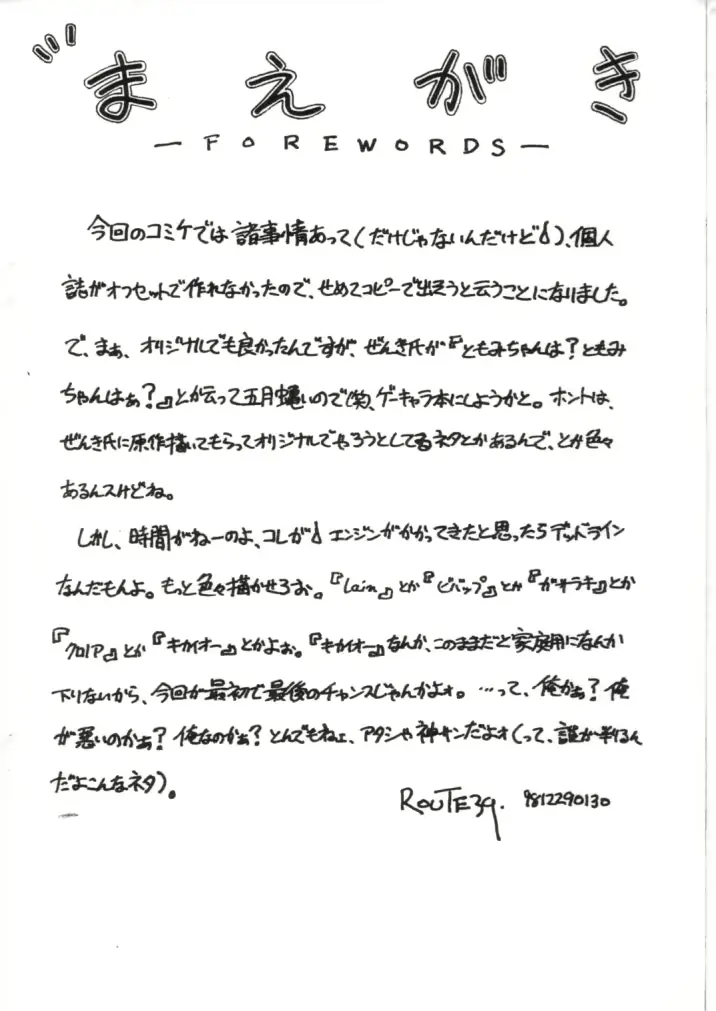 まえがき
—FOREWORDS—
今回のコミケでは諸事情あって(だけじゃないんだけど♪)、個人
誌がオフセットで作れなかったので、せめてコピーで出そうと云うことになりました。
で、まぁ、オリジナルでも良かったんですが、ぜんき氏が『ともみちゃんは?ともみ
ちゃんはぁ?』とか云って五月蝿いので(笑)、ゲーキャラ本にしようかと。ホントは、
ぜんき氏に原作描いてもらってオリジナルでやろうとしてるネタとかあるんで、とか色々
あるんスけどね。
しかし、時間がねーのよ、コレが♪エンジンがかかってきたと思ったらデッドライン
なんだもんよ。もっと色々描かせろぉ。『lain』とか『ビバップ』とか『ガサラキ』とか
『クロノア』とか『キカイオー』とかよぉ。『キカイオー』なんか、このままだと家庭用になんか
下りないから、今回が最初で最後のチャンスじゃんかよォ。…って、俺かぁ?俺
が悪いのかぁ?俺なのかぁ?とんでもねェ、アタシャ神サンだよォ(って、誰が判るん
だよこんなネタ)。
ROUTE39. 9812290130